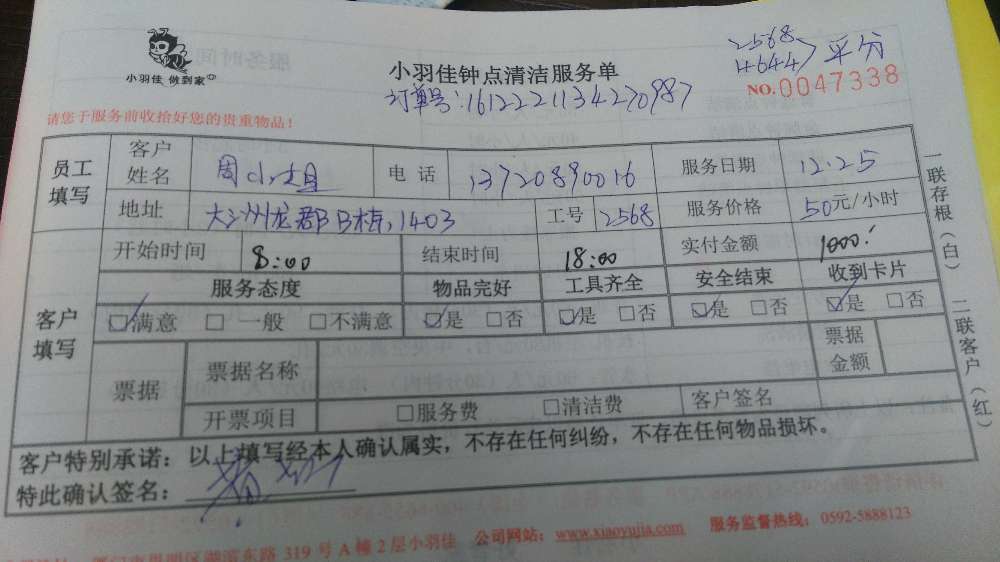 小羽佳 做到家
小羽佳钟点清洁服务单
2568
4644 平分
订单号:1612221134270987
NO.0047338
请您于服务前收拾好您的贵重物品!
员工填写 客户姓名 周小姐 电话 13720890016 服务日期 12.25
地址 大洲龙郡B栋,1403 工号 2568 服务价格 50元/小时
客户填写 开始时间 8:00 结束时间 18:00 实付金额 1000
服务态度 物品完好 工具齐全 安全结束 收到卡片
☑满意 □一般 □不满意 ☑是 □否 ☑是 □否 ☑是 □否 ☑是 □否
票据 票据名称 票据金额
开票项目 □服务费 □清洁费 客户签名
客户特别承诺:以上填写经本人确认属实,不存在任何纠纷,不存在任何物品损坏。
特此确认签名:
东路 319 号 A 幢 2 层小羽佳 公司网站:www.xiaoyujia.com 服务监督热线:0592-5888123
一联存根(白) 二联客户(红)